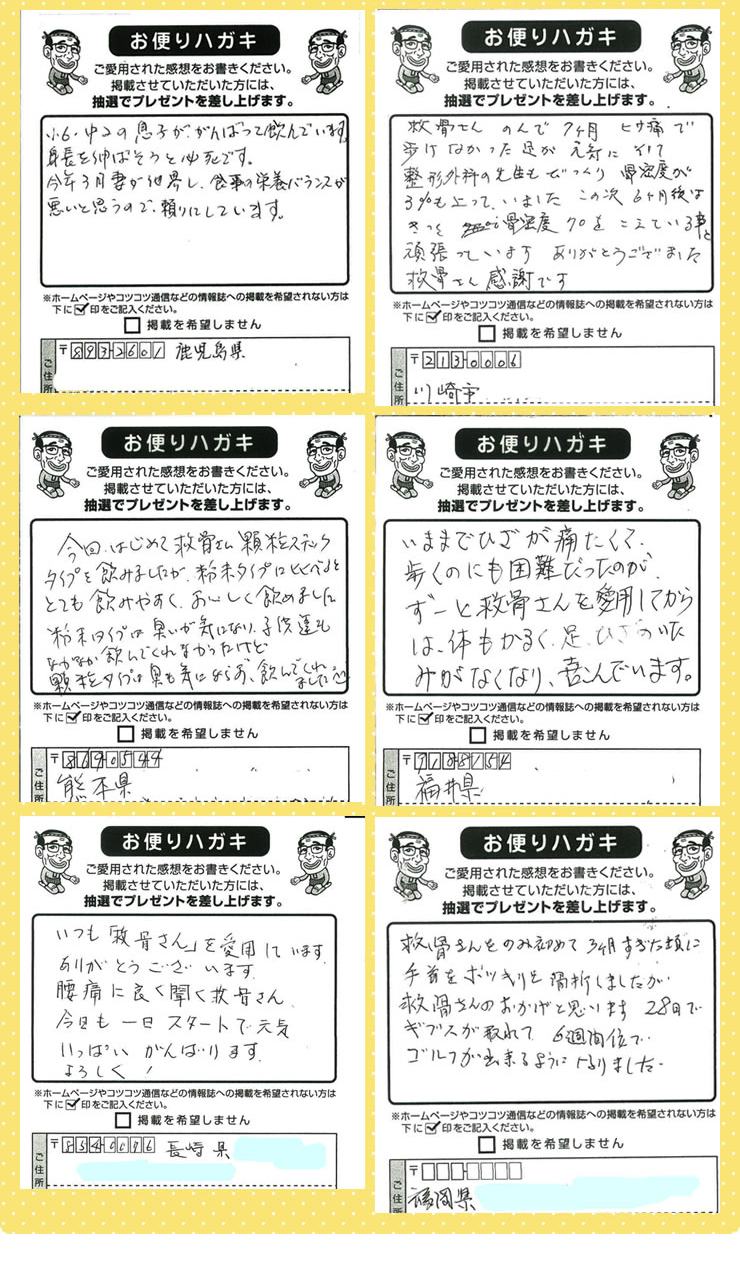 お便りハガキ
ご愛用された感想をお書きください。
掲載させていただいた方には、
抽選でプレゼントを差し上げます。
小6・中2の息子が、がんばって飲んでいます。
身長を伸ばそうと必死です。
今年3月妻が他界し、食事の栄養バランスが
悪いと思うので、頼りにしています。
※ホームページやコツコツ通信などの情報誌への掲載を希望されない方は
下に✓印をご記入ください。
掲載を希望しません
ご住所
〒8932601 鹿児島県
お便りハガキ
ご愛用された感想をお書きください。
掲載させていただいた方には、
抽選でプレゼントを差し上げます。
救骨さん のんで 7ヶ月 ヒザ痛で
歩けなかった足が 元気に
整形外科の先生もびっくり 骨密度が
3%も上っていました この次 6ヶ月後は
きっと 骨密度 70をこえている事と
頑張っています ありがとうございました
救骨さん 感謝です
※ホームページやコツコツ通信などの情報誌への掲載を希望されない方は
下に✓印をご記入ください。
掲載を希望しません
ご住所
〒2130006
川崎市
お便りハガキ
ご愛用された感想をお書きください。
掲載させていただいた方には、
抽選でプレゼントを差し上げます。
今回、はじめて救骨さん 顆粒スティック
タイプを飲みましたが、粉末タイプにくらべると
とても飲みやすく、おいしく飲めました
粉末タイプは臭いが気になり、子供達も
なかなか飲んでくれなかったけど
顆粒タイプは臭も気にならず、飲んでくれ
ました
※ホームページやコツコツ通信などの情報誌への掲載を希望されない方は
下に✓印をご記入ください。
掲載を希望しません
ご住所
〒8690544
熊本県
お便りハガキ
ご愛用された感想をお書きください。
掲載させていただいた方には、
抽選でプレゼントを差し上げます。
いままでひざが痛たくて、
歩くのにも困難だったのが、
ずーと救骨さんを愛用してから
は、体もかるく、足、ひざのいた
みがなくなり、喜こんでいます。
※ホームページやコツコツ通信などの情報誌への掲載を希望されない方は
下に✓印をご記入ください。
掲載を希望しません
ご住所
〒9188154
福井県
お便りハガキ
ご愛用された感想をお書きください。
掲載させていただいた方には、
抽選でプレゼントを差し上げます。
いつも「救骨さん」を愛用しています
ありがとうございます
腰痛に良く聞く救骨さん
今日も一日スタートで元気
いっぱい がんばります
よろしく!
※ホームページやコツコツ通信などの情報誌への掲載を希望されない方は
下に✓印をご記入ください。
掲載を希望しません
ご住所
〒8540076 長崎県
お便りハガキ
ご愛用された感想をお書きください。
掲載させていただいた方には、
抽選でプレゼントを差し上げます。
救骨さんをのみ初めて 3ヶ月すぎた頃に
手首をポッキリと骨折しましたが
救骨さんのおかげと思います 28日で
ギブスが取れて 6週間位で
ゴルフが出来るようになりました
※ホームページやコツコツ通信などの情報誌への掲載を希望されない方は
下に✓印をご記入ください。
掲載を希望しません
ご住所
〒
福岡県